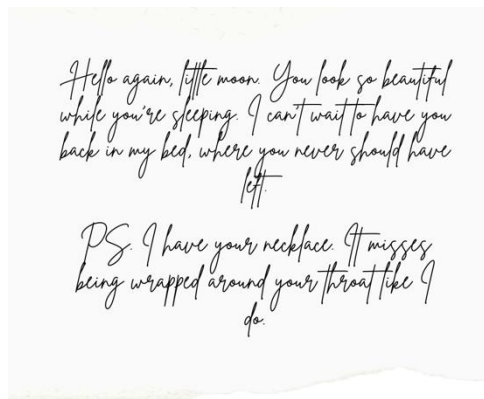 Hello again, little moon. You look so beautiful
while you're sleeping. I can't wait to have you
back in my bed, where you never should have
left.
PS. I have your necklace. It misses
being wrapped around your throat like I
do.